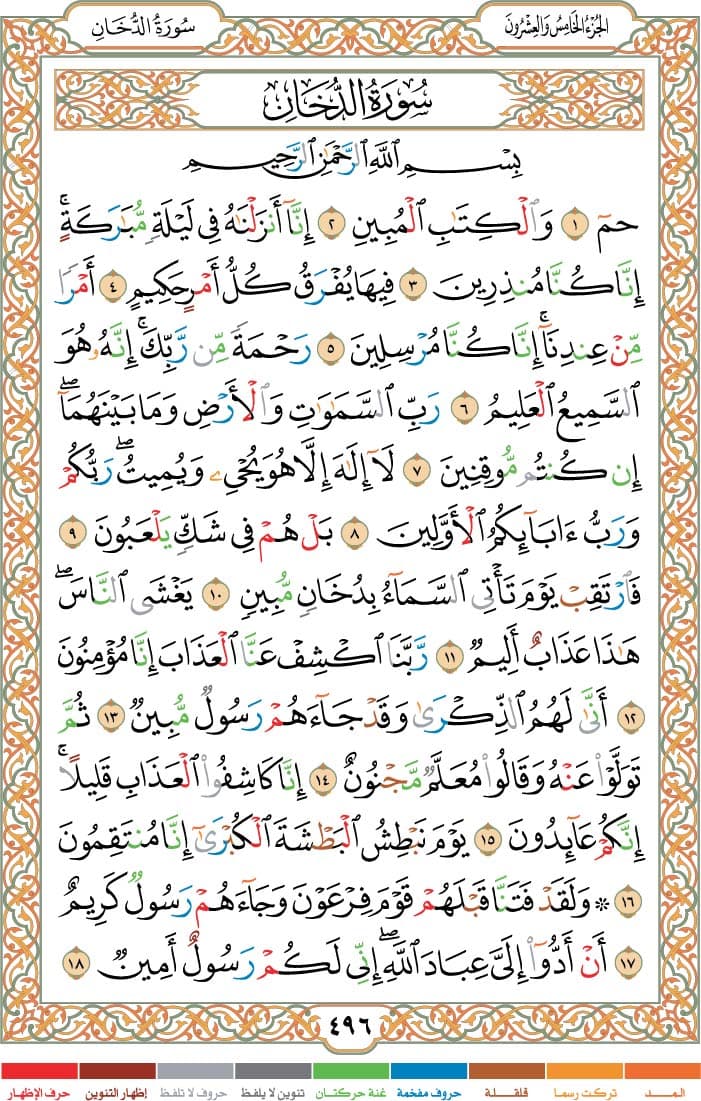 الجُزْءُ الخَامِسُ وَالعِشْرُونَ
سُورَةُ الدُّخَانِ
سُورَةُ الدُّخَانِ
بِسْمِ ٱللَّهِ ٱلرَّحْمَٰنِ ٱلرَّحِيمِ
حمٓ ١ وَٱلْكِتَٰبِ ٱلْمُبِينِ ٢ إِنَّآ أَنزَلْنَٰهُ فِى لَيْلَةٍ مُّبَٰرَكَةٍ ۚ
إِنَّا كُنَّا مُنذِرِينَ ٣ فِيهَا يُفْرَقُ كُلُّ أَمْرٍ حَكِيمٍ ٤ أَمْرًا
مِّنْ عِندِنَآ ۚ إِنَّا كُنَّا مُرْسِلِينَ ٥ رَحْمَةً مِّن رَّبِّكَ ۚ إِنَّهُۥ هُوَ
ٱلسَّمِيعُ ٱلْعَلِيمُ ٦ رَبِّ ٱلسَّمَٰوَٰتِ وَٱلْأَرْضِ وَمَا بَيْنَهُمَآ ۖ
إِن كُنتُم مُّوقِنِينَ ٧ لَآ إِلَٰهَ إِلَّا هُوَ يُحْىِۦ وَيُمِيتُ ۖ رَبُّكُمْ
وَرَبُّ ءَابَآئِكُمُ ٱلْأَوَّلِينَ ٨ بَلْ هُمْ فِى شَكٍّ يَلْعَبُونَ ٩
فَٱرْتَقِبْ يَوْمَ تَأْتِى ٱلسَّمَآءُ بِدُخَانٍ مُّبِينٍ ١٠ يَغْشَى ٱلنَّاسَ ۖ
هَٰذَا عَذَابٌ أَلِيمٌ ١١ رَّبَّنَا ٱكْشِفْ عَنَّا ٱلْعَذَابَ إِنَّا مُؤْمِنُونَ
١٢ أَنَّىٰ لَهُمُ ٱلذِّكْرَىٰ وَقَدْ جَآءَهُمْ رَسُولٌ مُّبِينٌ ١٣ ثُمَّ
تَوَلَّوْا۟ عَنْهُ وَقَالُوا۟ مُعَلَّمٌ مَّجْنُونٌ ١٤ إِنَّا كَاشِفُوا۟ ٱلْعَذَابِ قَلِيلًا ۚ
إِنَّكُمْ عَآئِدُونَ ١٥ يَوْمَ نَبْطِشُ ٱلْبَطْشَةَ ٱلْكُبْرَىٰٓ إِنَّا مُنتَقِمُونَ
١٦ ۞ وَلَقَدْ فَتَنَّا قَبْلَهُمْ قَوْمَ فِرْعَوْنَ وَجَآءَهُمْ رَسُولٌ كَرِيمٌ
١٧ أَنْ أَدُّوٓا۟ إِلَىَّ عِبَادَ ٱللَّهِ ۖ إِنِّى لَكُمْ رَسُولٌ أَمِينٌ ١٨
٤٩٦
المـــد تركت رسما قلقـلة حروف مفخمة غنة حركتان تنوين لا يلفظ حروف لا تلفظ إظهار التنوين حرف الإظهار